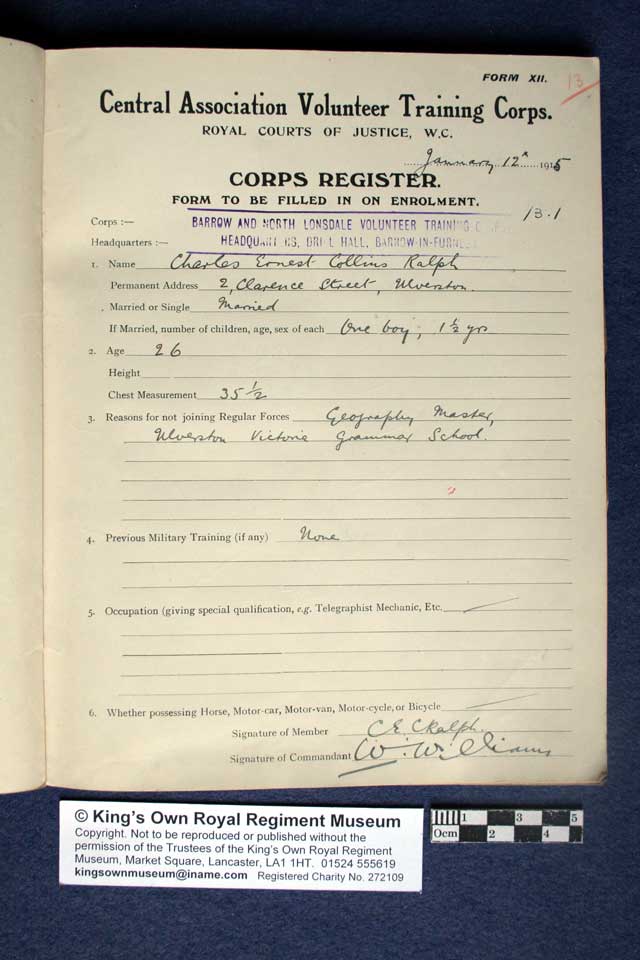 FORM XII.
13
Central Association Volunteer Training Corps.
ROYAL COURTS OF JUSTICE, W.C.
January 12th 1915
CORPS REGISTER.
FORM TO BE FILLED IN ON ENROLMENT.
13.1
Corps :— BARROW AND NORTH LONSDALE VOLUNTEER TRAINING
Headquarters :— HEADQUARTERS, DRILL HALL, BARROW-IN-FURNESS
1. Name Charles Ernest Collins Ralph
Permanent Address 2, Clarence Street, Ulverston.
Married or Single Married
If Married, number of children, age, sex of each One boy, 1½ yrs
2. Age 26
Height
Chest Measurement 35½
3. Reasons for not joining Regular Forces Geography Master,
Ulverston Victoria Grammar School.
4. Previous Military Training (if any) None
5. Occupation (giving special qualification, e.g. Telegraphist Mechanic, Etc.
6. Whether possessing Horse, Motor-car, Motor-van, Motor-cycle, or Bicycle
Signature of Member C.E. C Ralph.
Signature of Commandant W. Williams
© King's Own Royal Regiment Museum
Copyright. Not to be reproduced or published without the
permission of the Trustees of the King's Own Royal Regiment
Museum, Market Square, Lancaster, LA1 1HT. 01524 555619
kingsownmuseum@iname.com Registered Charity No. 272109
1 3 5
0cm 2 4